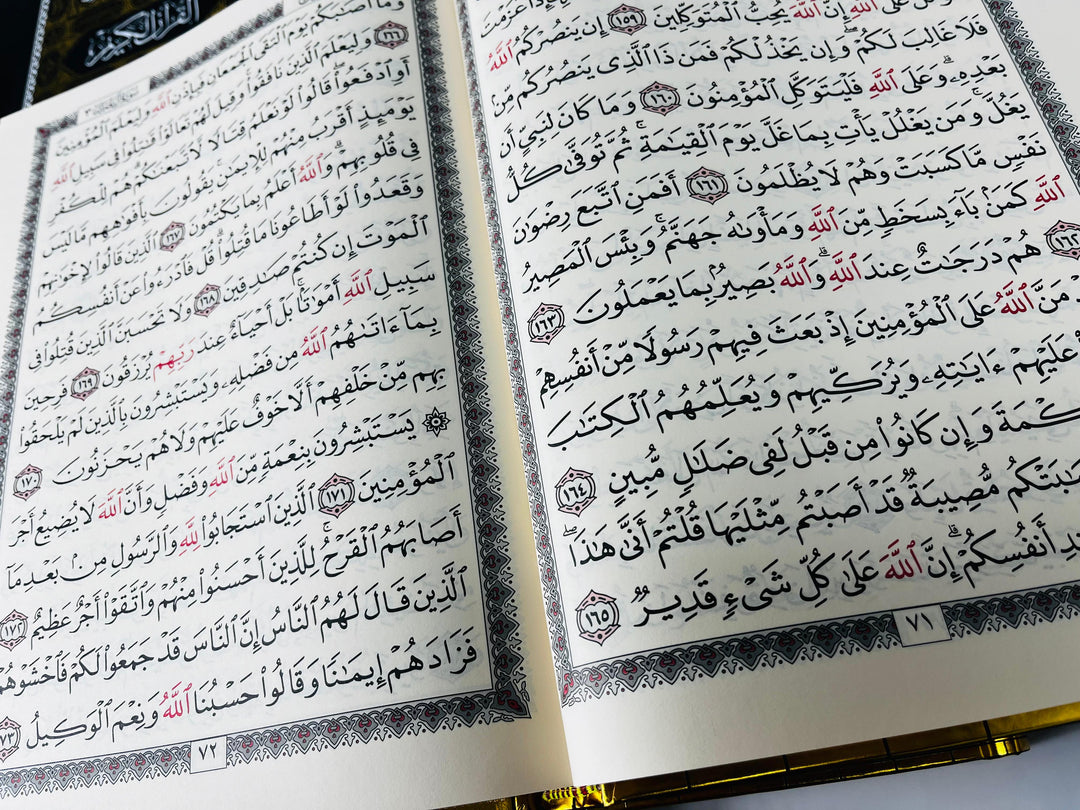 القرآن الكريم
عَزَمْتَ
عَلَى ٱللَّهِ إِنَّ ٱللَّهَ يُحِبُّ ٱلْمُتَوَكِّلِينَ ١٥٩ إِن يَنصُرْكُمُ ٱللَّهُ
فَلَا غَالِبَ لَكُمْ وَإِن يَخْذُلْكُمْ فَمَن ذَا ٱلَّذِى يَنصُرُكُم مِّنۢ
بَعْدِهِۦ وَعَلَى ٱللَّهِ فَلْيَتَوَكَّلِ ٱلْمُؤْمِنُونَ ١٦٠ وَمَا كَانَ لِنَبِىٍّ أَن
يَغُلَّ وَمَن يَغْلُلْ يَأْتِ بِمَا غَلَّ يَوْمَ ٱلْقِيَٰمَةِ ثُمَّ تُوَفَّىٰ كُلُّ
نَفْسٍ مَّا كَسَبَتْ وَهُمْ لَا يُظْلَمُونَ ١٦١ أَفَمَنِ ٱتَّبَعَ رِضْوَٰنَ
ٱللَّهِ كَمَنۢ بَآءَ بِسَخَطٍ مِّنَ ٱللَّهِ وَمَأْوَىٰهُ جَهَنَّمُ وَبِئْسَ ٱلْمَصِيرُ
١٦٢ هُمْ دَرَجَٰتٌ عِندَ ٱللَّهِ وَٱللَّهُ بَصِيرٌۢ بِمَا يَعْمَلُونَ ١٦٣
مَنَّ ٱللَّهُ عَلَى ٱلْمُؤْمِنِينَ إِذْ بَعَثَ فِيهِمْ رَسُولًا مِّنْ أَنفُسِهِمْ
عَلَيْهِمْ ءَايَٰتِهِۦ وَيُزَكِّيهِمْ وَيُعَلِّمُهُمُ ٱلْكِتَٰبَ
كْمَةَ وَإِن كَانُوا۟ مِن قَبْلُ لَفِى ضَلَٰلٍ مُّبِينٍ ١٦٤
صَٰبَتْكُم مُّصِيبَةٌ قَدْ أَصَبْتُم مِّثْلَيْهَا قُلْتُمْ أَنَّىٰ هَٰذَا
دِ أَنفُسِكُمْ إِنَّ ٱللَّهَ عَلَىٰ كُلِّ شَىْءٍ قَدِيرٌ ١٦٥
٧١
وَمَآ أَصَٰبَكُمْ يَوْمَ ٱلْتَقَى ٱلْجَمْعَانِ فَبِإِذْنِ ٱللَّهِ وَلِيَعْلَمَ ٱلْمُؤْمِنِينَ
١٦٦ وَلِيَعْلَمَ ٱلَّذِينَ نَافَقُوا۟ وَقِيلَ لَهُمْ تَعَالَوْا۟ قَٰتِلُوا۟ فِى سَبِيلِ ٱللَّهِ
أَوِ ٱدْفَعُوا۟ قَالُوا۟ لَوْ نَعْلَمُ قِتَالًا لَّٱتَّبَعْنَٰكُمْ هُمْ لِلْكُفْرِ
يَوْمَئِذٍ أَقْرَبُ مِنْهُمْ لِلْإِيمَٰنِ يَقُولُونَ بِأَفْوَٰهِهِم مَّا لَيْسَ
فِى قُلُوبِهِمْ وَٱللَّهُ أَعْلَمُ بِمَا يَكْتُمُونَ ١٦٧ ٱلَّذِينَ قَالُوا۟ لِإِخْوَٰنِهِمْ
وَقَعَدُوا۟ لَوْ أَطَاعُونَا مَا قُتِلُوا۟ قُلْ فَٱدْرَءُوا۟ عَنْ أَنفُسِكُمُ
ٱلْمَوْتَ إِن كُنتُمْ صَٰدِقِينَ ١٦٨ وَلَا تَحْسَبَنَّ ٱلَّذِينَ قُتِلُوا۟ فِى
سَبِيلِ ٱللَّهِ أَمْوَٰتًۢا بَلْ أَحْيَآءٌ عِندَ رَبِّهِمْ يُرْزَقُونَ ١٦٩ فَرِحِينَ
بِمَآ ءَاتَىٰهُمُ ٱللَّهُ مِن فَضْلِهِۦ وَيَسْتَبْشِرُونَ بِٱلَّذِينَ لَمْ يَلْحَقُوا۟
بِهِم مِّنْ خَلْفِهِمْ أَلَّا خَوْفٌ عَلَيْهِمْ وَلَا هُمْ يَحْزَنُونَ ١٧٠
۞ يَسْتَبْشِرُونَ بِنِعْمَةٍ مِّنَ ٱللَّهِ وَفَضْلٍ وَأَنَّ ٱللَّهَ لَا يُضِيعُ أَجْرَ
ٱلْمُؤْمِنِينَ ١٧١ ٱلَّذِينَ ٱسْتَجَابُوا۟ لِلَّهِ وَٱلرَّسُولِ مِنۢ بَعْدِ مَآ
أَصَابَهُمُ ٱلْقَرْحُ لِلَّذِينَ أَحْسَنُوا۟ مِنْهُمْ وَٱتَّقَوْا۟ أَجْرٌ عَظِيمٌ ١٧٢
ٱلَّذِينَ قَالَ لَهُمُ ٱلنَّاسُ إِنَّ ٱلنَّاسَ قَدْ جَمَعُوا۟ لَكُمْ فَٱخْشَوْهُمْ
فَزَادَهُمْ إِيمَٰنًا وَقَالُوا۟ حَسْبُنَا ٱللَّهُ وَنِعْمَ ٱلْوَكِيلُ ١٧٣
٧٢